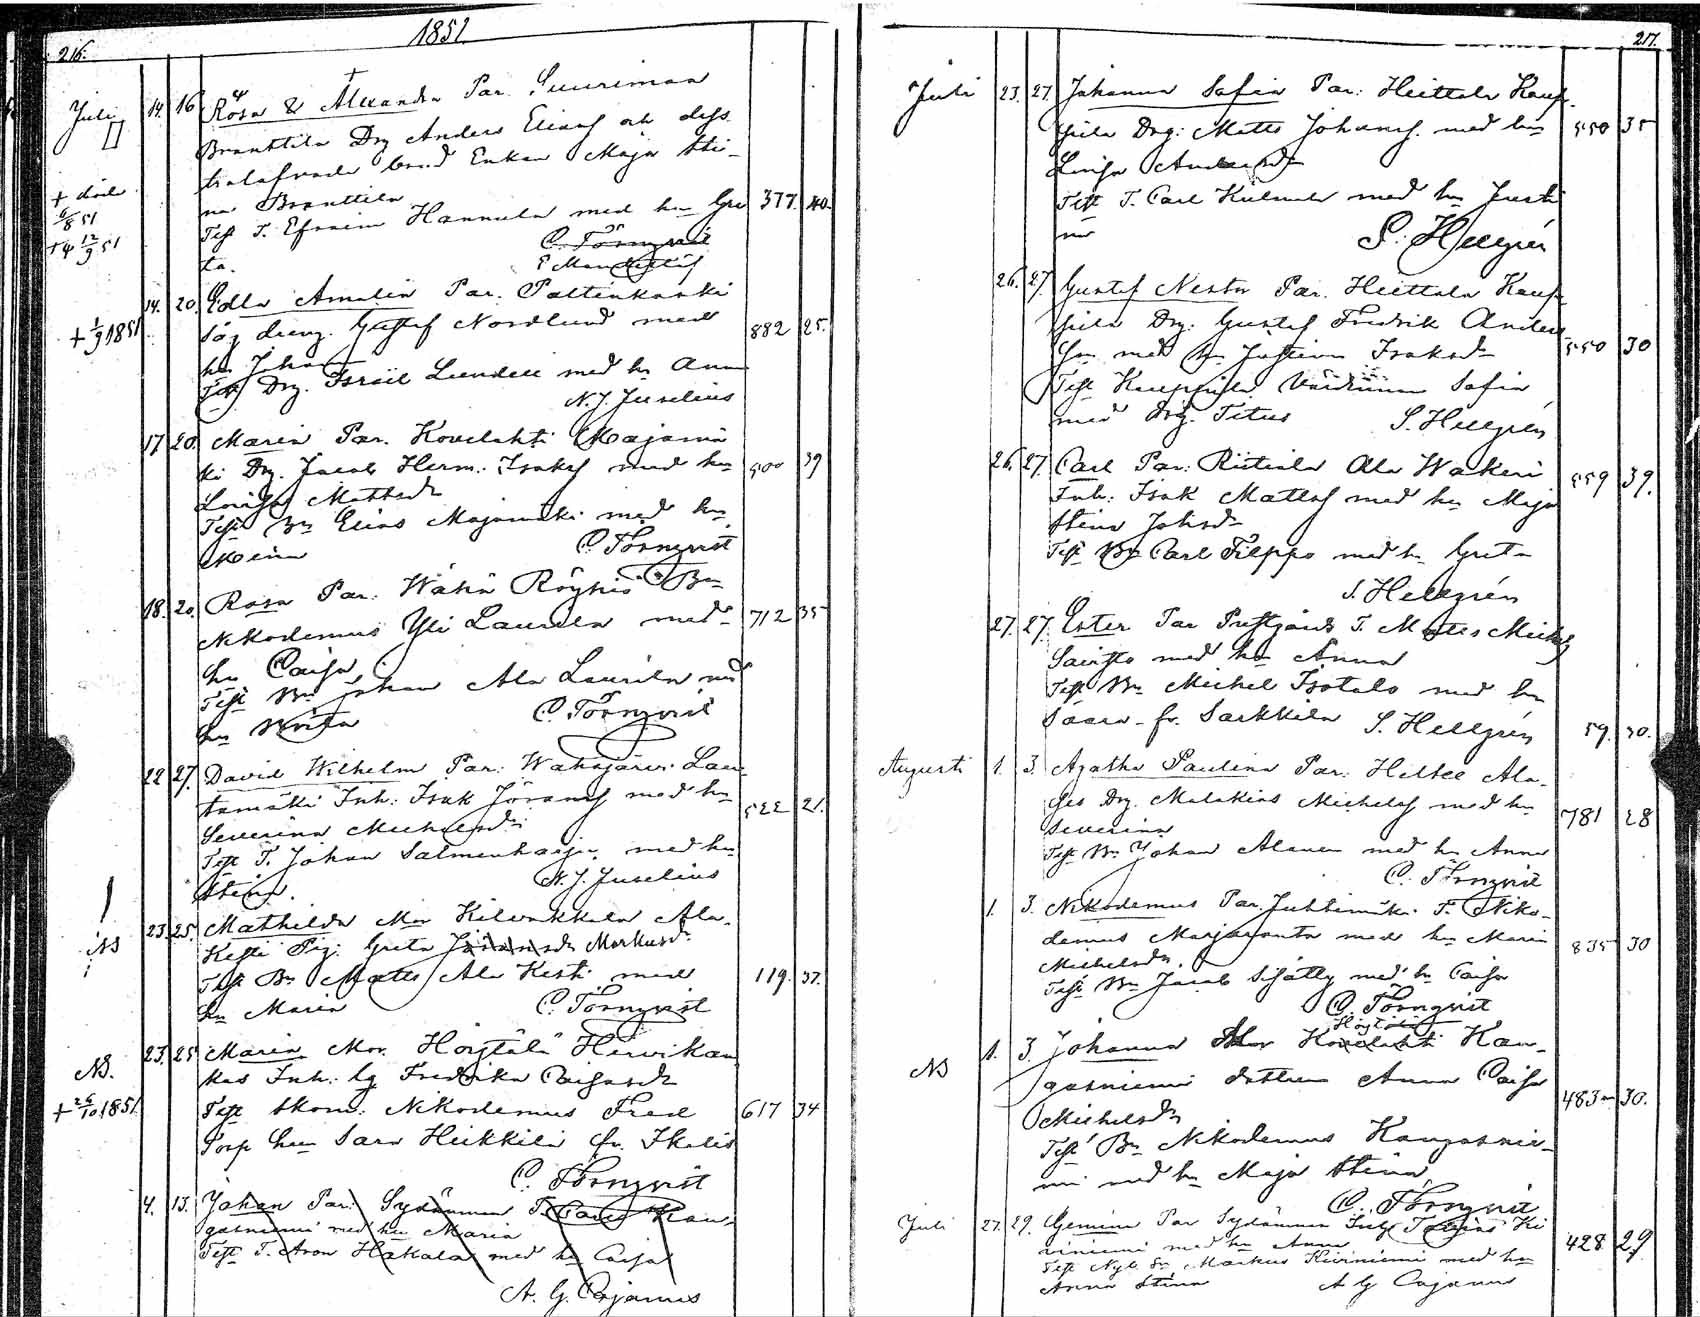 216.
1851.
Juli
14. 16 Rosa & Alexandra Par. Suuriman
Branttila Drg Anders Eliass och dess
trolofvade brud Enkan Maja Sti-
na Branttila
Test T. Efraim Hannula med hu Gre 377. 40.
ta.
C. Törnqvist
+ döde
6/8 51
+ 12/9 51
14. 20. Edla Amalia Par.
Gustaf Nordlund med 882 25.
hu Johanna
Test Drg. Israel Lundell med hu Anna
N. J. Juselius
+ 1/9 1851
17 20. Maria Par. Kovelahti Majamä
ki Drg. Jacob Herm. Isaks med hu 500 39
Lovisa Mattsdr
Test Bn Elias Majamäki med hu
C. Törnqvist
18. 20. Rosa Par. Wähä Röyhiö Bn
Nikodemus Yli Laurila med 712 35
hu Caisa
Test Bn Johan Ala Laurila med
hu
C. Törnqvist
22 27. David Wilhelm Par. Wahojärvi Lau
tamäki Inh: Isak Jöranss med hu 522 21.
Severina Michelsdr
Test T. Johan Salmenharju med hu
Stina.
N. J. Juselius
NB
23. 25. Mathilda Mor Kilvakkala Ala.
Kesti Pig: Greta Markusdr
Test Bn Matts Ala Kesti med 119. 37.
hu Maria
C. Törnqvist
NB.
+ 26/10 1851
23. 25 Maria Mor. Höytölä Hirvikan
kas Inh: hj Fredrika Caisasdr
Test Skom: Nikodemus Fred 617 34
Torp hu Sara Heikkilä fr. Ikalis
C. Törnqvist
4. 13. Johan Par. Sydänmaa T. Kan-
gasniemi med hu Maria
Test T. Aron Hakala med hu Caisa
A. G. Cajanus
217.
Juli
23. 27. Johanna Sofia Par: Heittola Kaup
pila Drg: Matts Johanss. med hu 550 35
Lovisa Andersdr
Test T. Carl med hu Justi
na
S. Hellgrén
26. 27. Gustaf Nestor Par. Heittola Kaup
pila Drg: Gustaf Fredrik Anders
son med hu Justina Isaksdr 550 30
Test Kauppila Sofia
med Drg. Titus
S. Hellgrén
26. 27. Carl Par: Ristiala Ala Wakeri 559 39.
Inh: Isak Mattss med hu Maja
Stina Johsdr
Test Bn Carl Filppo med hu Greta
S. Hellgrén
27. 27. Ester Par Prestgårds T. Matts Michels
med hu Anna
Test Bn Michel Isotalo med hu
Saara fr. Sarkkila S. Hellgrén 59. 30.
Augusti
1. 3. Agatha Paulina Par: Heltee Ala.
Drg. Malakias Michelss med hu 781 28
Severina
Test Bn Johan Alanen med hu Anna
C. Törnqvist
1. 3. Nikodemus Par. Juhtimäki T. Niko-
demus Marjaranta med hu Maria 835 30
Michelsdr.
Test Bn Jacob med hu Caisa
C. Törnqvist
NB
Höytölä
1. 3. Johanna Mor Kovelahti Kan-
gasniemi dottren Anna Caisa 483 30.
Michelsdr
Test Bn Nikodemus Kangasnie-
mi med hu Maja Stina
C. Törnqvist
Juli
27. 29. Par Sydänmaa Tobias Ki
viniemi med hu Anna 428 29
Test Nyb. Sn Markus Kiviniemi med hu
Anna Stina
A G Cajanus